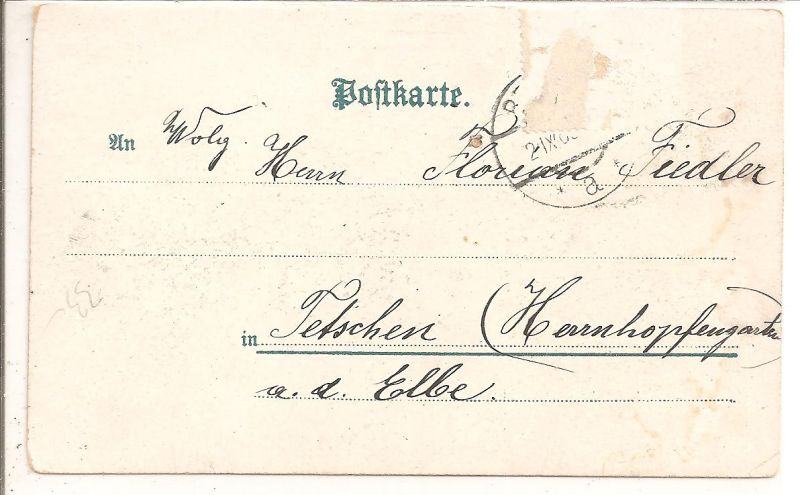 Postkarte.
An Wolg. Herrn Florian Fiedler
in Tetschen (Herrnhopfengarten)
a. d. Elbe.
a